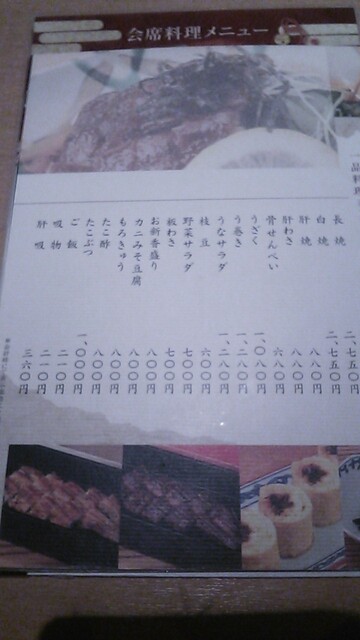 会席料理メニュー
一品料理
長焼 二、七五〇円
白焼 二、七五〇円
肝焼 八八〇円
肝わさ 八八〇円
骨せんべい 八八〇円
うざく 一、〇八〇円
う巻き 一、二八〇円
うなサラダ 一、二八〇円
枝豆 六〇〇円
野菜サラダ 七〇〇円
板わさ 七〇〇円
お新香盛り 八〇〇円
カニみそ豆腐 八〇〇円
もろきゅう 八〇〇円
たこ酢 八〇〇円
たこぶつ 一、〇〇〇円
ご飯 二一〇円
吸物 二一〇円
肝吸 三六〇円